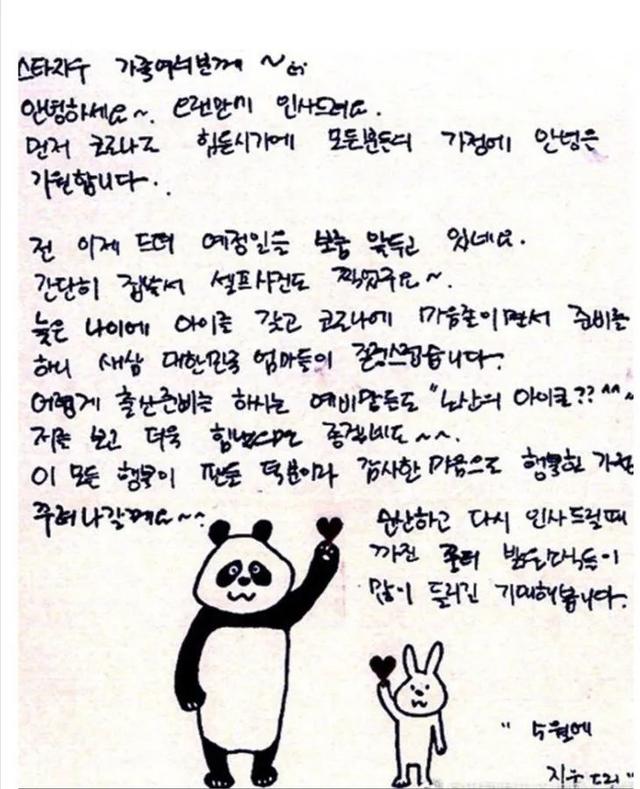 스타지우 가족여러분께 ~
안녕하세요~. 오랜만에 인사드려요.
먼저 코로나로 힘든시기에 모든분들의 가정에 안녕을
기원합니다..
전 이제 드뎌 예정일을 보름 앞두고 있네요.
간단히 집에서 셀프사진도 찍었구요~.
늦은 나이에 아이를 갖고 코로나에 마음졸이면서 준비를
하니 새삼 대한민국 엄마들이 존경스럽습니다.
어렵게 출산준비를 하시는 예비맘들도 "노산의 아이콘?? ^^"
저를 보고 더욱 힘냈으면 좋겠네요~~.
이 모든 행복이 팬들 덕분이라 감사한 마음으로 행복한 가정
꾸려나갈께요~~
순산하고 다시 인사드릴때
까진 밝은소식들이
많이 들리길 기대해봅니다.
" 4월에
지우 드림 "